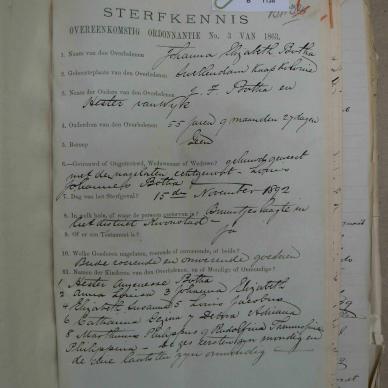 B 1138
STERFKENNIS
OVEREENKOMSTIG ORDONNANTIE No. 3 VAN 1863.
1. Naam van den Overledenen Johanna Elizabeth Botha
2. Geboorteplaats van den Overledenen Swellendam Kaap Kolonie
3. Namen der Ouders van den Overledenen J. F. Botha en
Hester van Wyk
4. Ouderdom van den Overledenen 55 jaren 9 maanden 27 dagen
5. Beroep Geen
6. Getrouwd of Ongetrouwd, Weduwnaar of Weduwe? gehuwd geweest
met den nagelaten echtgenoot - Louis
Johannes Botha
7. Dag van het Sterfgeval? 15de November 1892
8. In welk huis, of waar de persoon overleden is? in
het district Kroonstad -
9. Of er een Testament is? Ja
10. Welke Goederen nagelaten, roerende of onroerende, of beide?
Beide roerende en onroerende goederen
11. Namen der Kinderen van den Overledenen, en of Mondig of Onmondig?
1 Hester Botha
2 Anna Louisa 3 Johanna Elizabeth
4 Elizabeth Susanna 5 Louis Jacobus
6 Catharina 7 Debora Adriana
8 Marthinus Philippus 9 Rudolfina
Philippina - de zes eersten zyn mondig en
de drie laatsten zyn onmondig